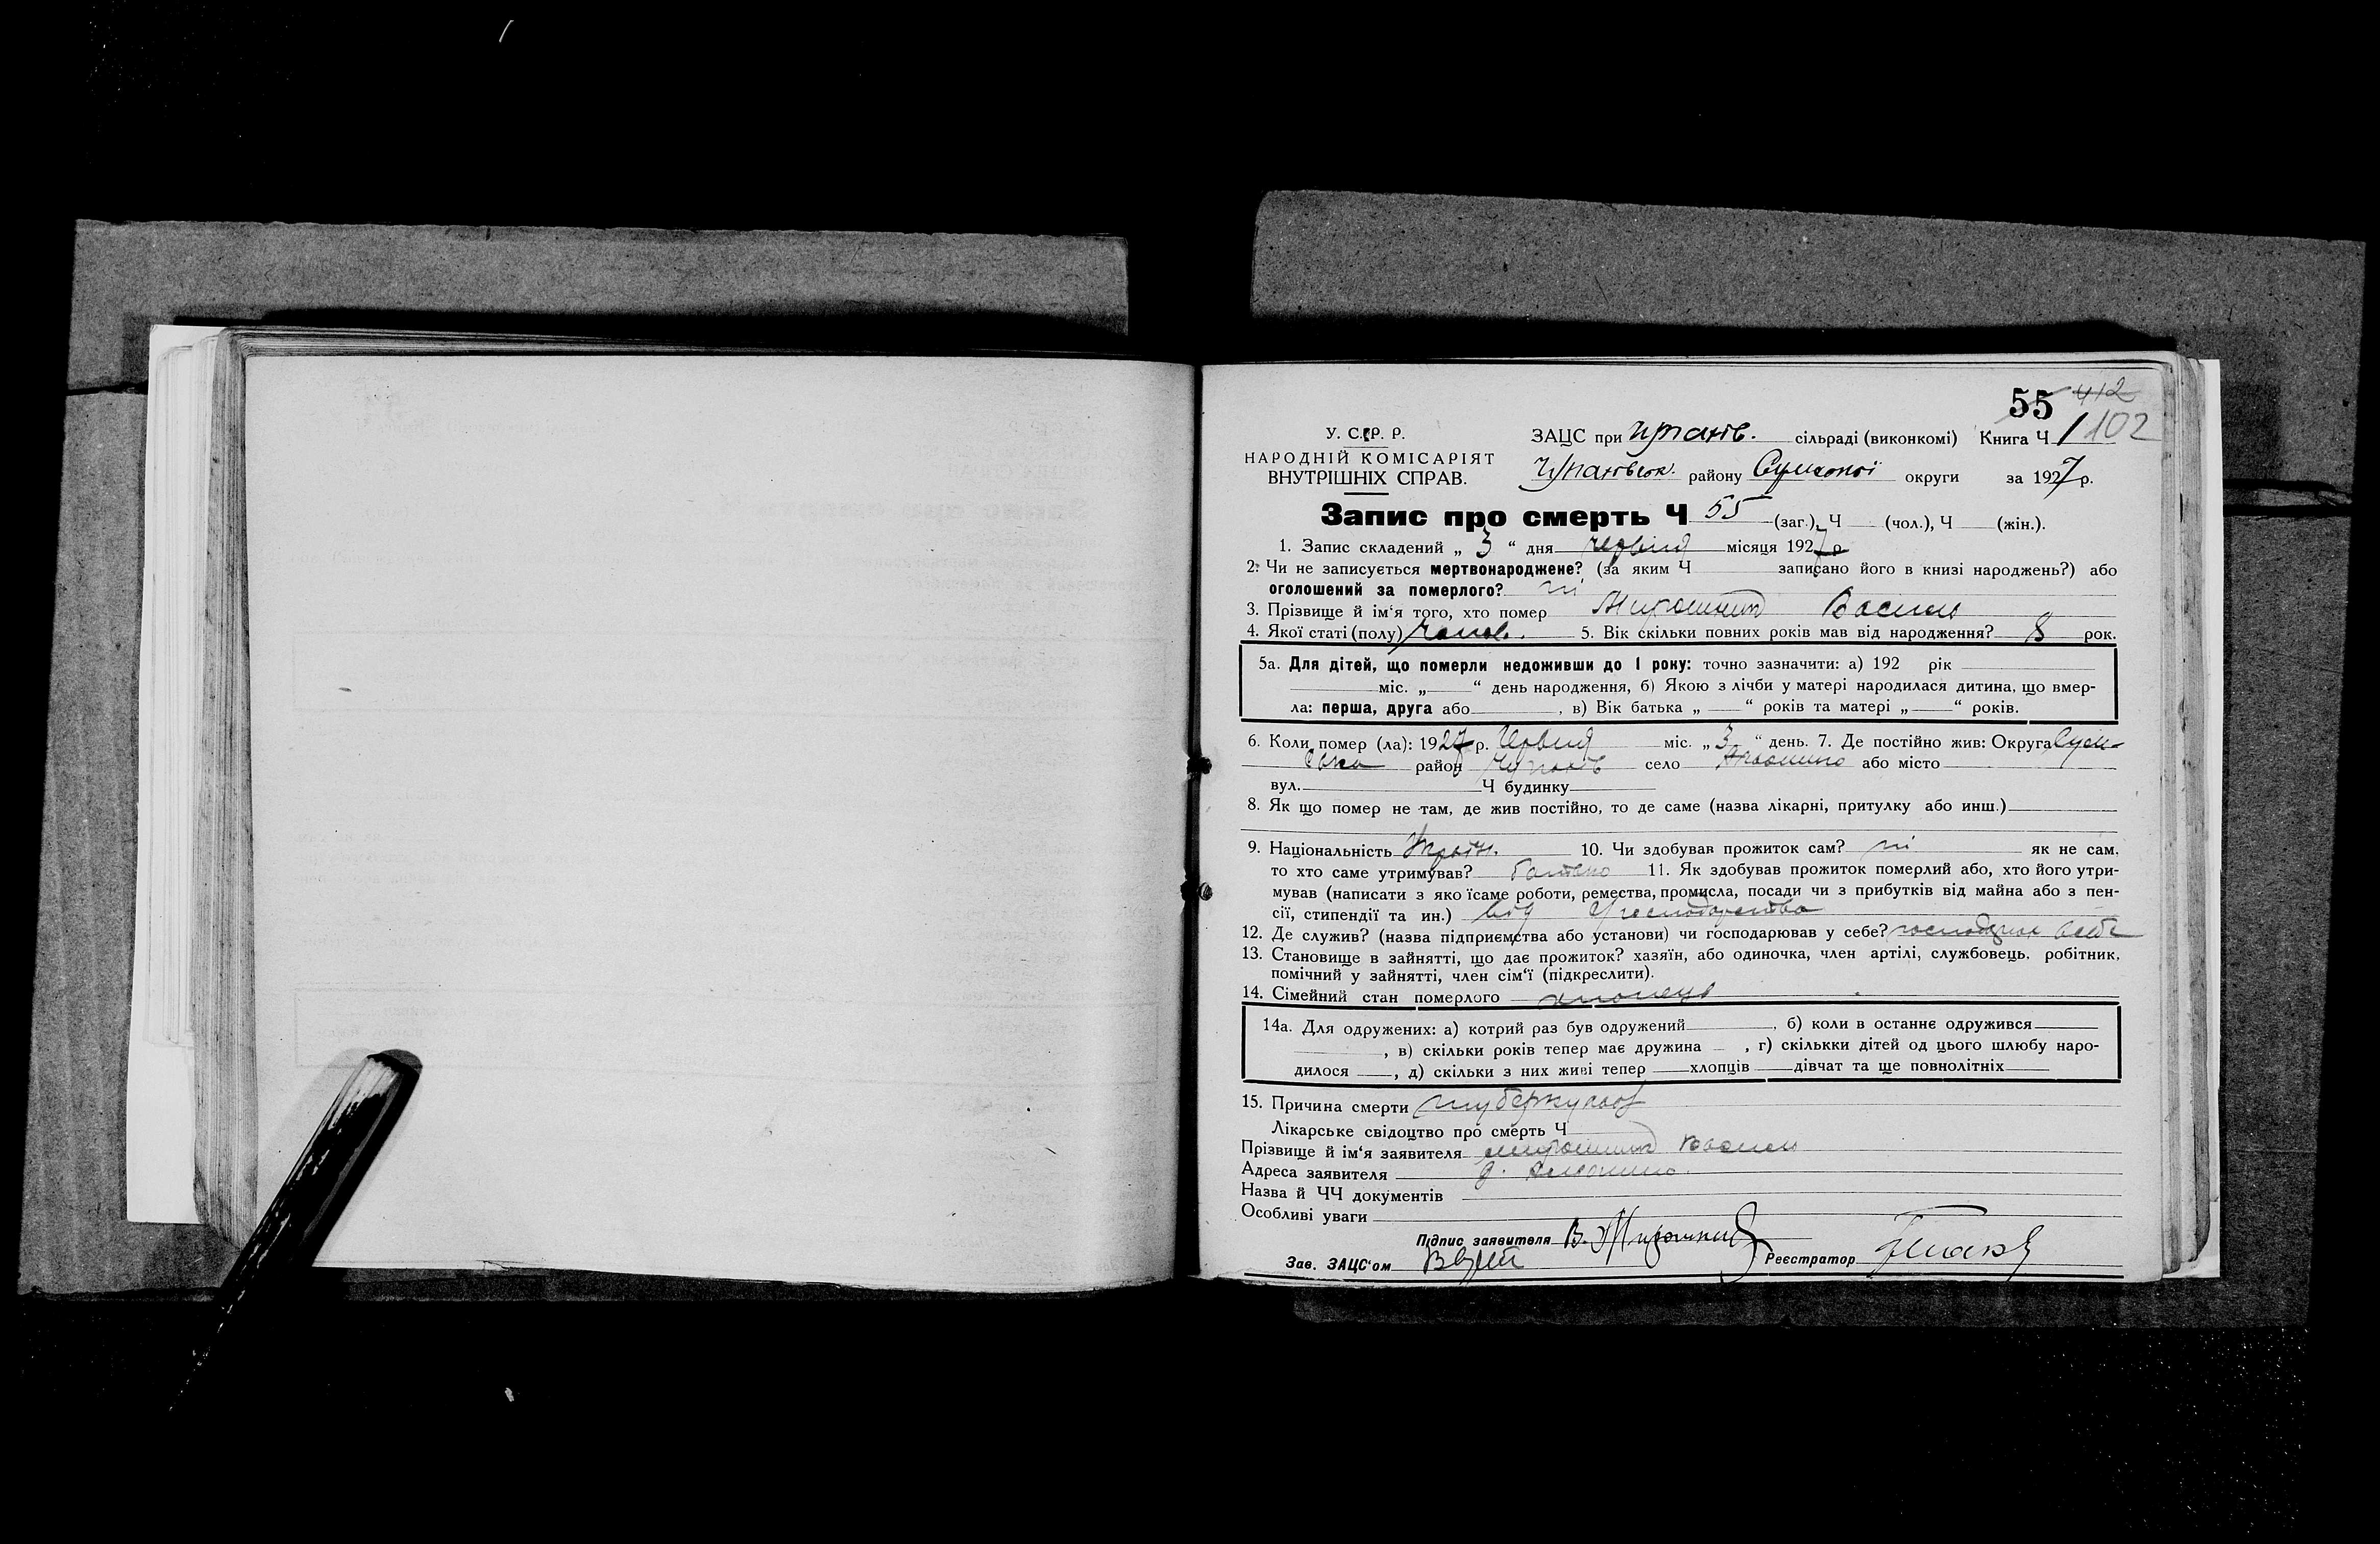 55 412
У. С. Р. Р. ЗАЦС при сільраді (виконкомі) Книга Ч 1 102
НАРОДНІЙ КОМІСАРІЯТ
ВНУТРІШНІХ СПРАВ. району Сумської округи за 1927 р.
Запис про смерть Ч 55 (заг.), Ч (чол.), Ч (жін.).
1. Запис складений „ 3 “ дня червня місяця 1927 р.
2. Чи не записується мертвонароджене? (за яким Ч записано його в книзі народжень?) або
оголошений за померлого? ні
3. Прізвище й ім‘я того, хто помер Мирошник Василь
4. Якої статі (полу) чолов. 5. Вік скільки повних років мав від народження? 8 рок.
5а. Для дітей, що померли недоживши до 1 року: точно зазначити: а) 192 рік
міс. „ “ день народження, б) Якою з лічби у матері народилася дитина, що вмер-
ла: перша, друга або , в) Вік батька „ “ років та матері „ “ років.
6. Коли помер (ла): 1927 р. Червня міс. „ 3 “ день. 7. Де постійно жив: Округа Сум-
ська район село або місто
вул. Ч будинку
8. Як що помер не там, де жив постійно, то де саме (назва лікарні, притулку або инш.)
9. Національність Україн. 10. Чи здобував прожиток сам? ні як не сам,
то хто саме утримував? батько 11. Як здобував прожиток померлий або, хто його утри-
мував (написати з яко їсаме роботи, ремества, промисла, посади чи з прибутків від майна або з пен-
сії, стипендії та ин.) від господарства
12. Де служив? (назва підприємства або установи) чи господарював у себе? себе
13. Становище в зайнятті, що дає прожиток? хазяїн, або одиночка, член артілі, службовець, робітник,
помічний у зайнятті, член сім‘ї (підкреслити).
14. Сімейний стан померлого хлопець
14а. Для одружених: а) котрий раз був одружений , б) коли в останнє одружився
, в) скільки років тепер має дружина , г) скількки дітей од цього шлюбу наро-
дилося , д) скільки з них живі тепер хлопців дівчат та ще повнолітніх
15. Причина смерти туберкульоз
Лікарське свідоцтво про смерть Ч
Прізвище й ім‘я заявителя мирошник Василь
Адреса заявителя
Назва й ЧЧ документів
Особливі уваги
Підпис заявителя В. Мирошник
Зав. ЗАЦС‘ом Реєстратор